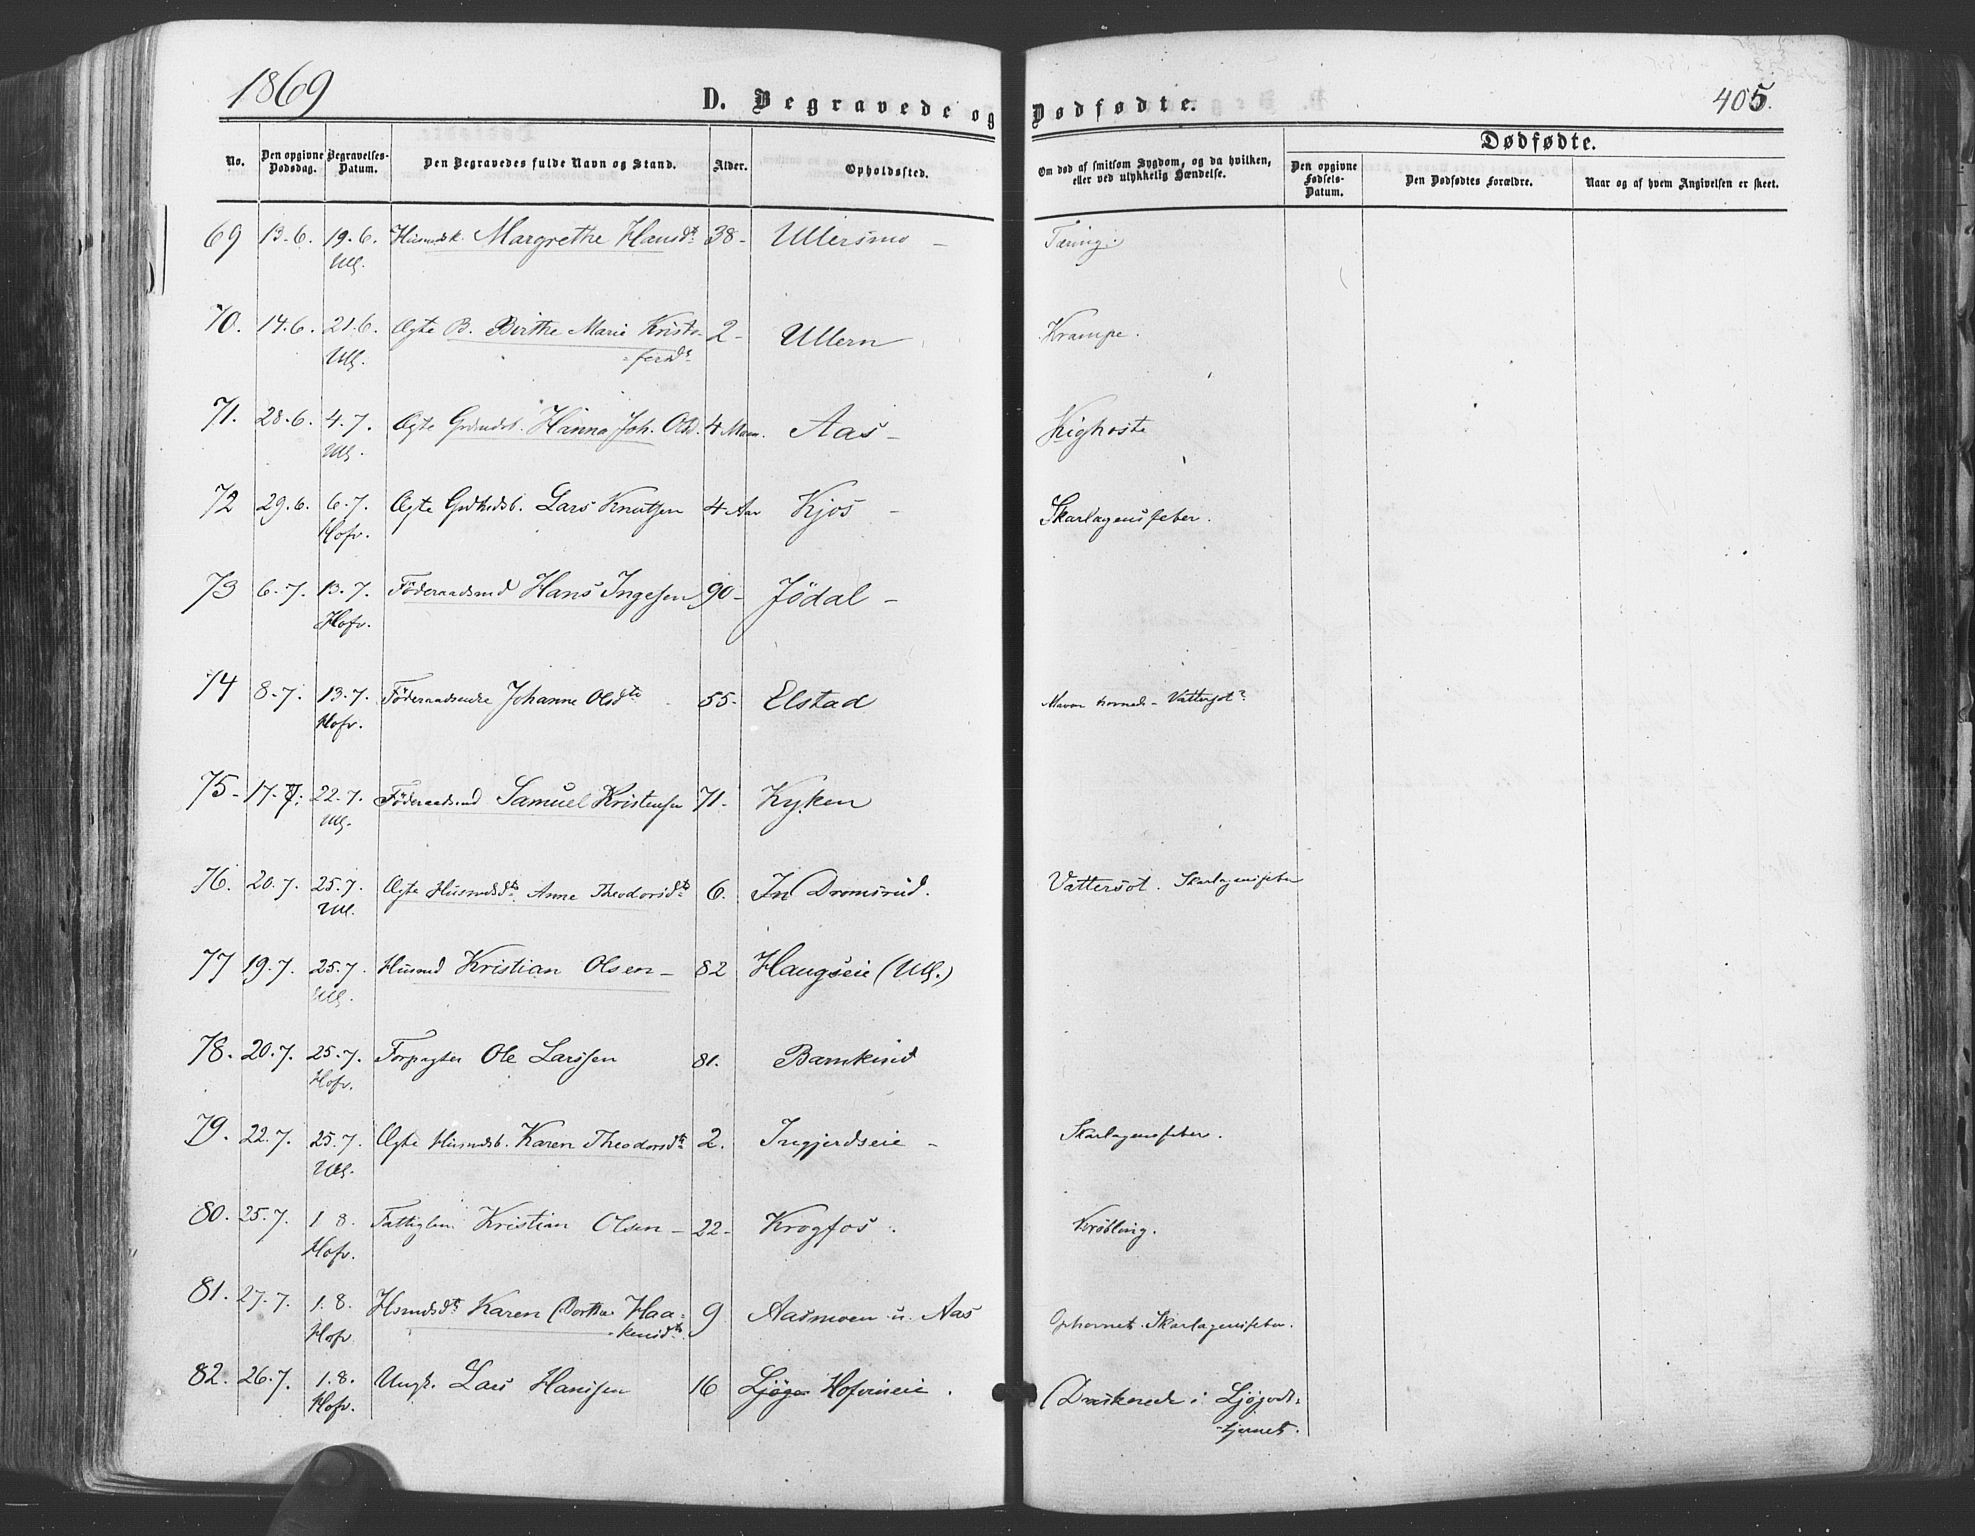 1869
D. Begravede og Dødfødte.
405.
Dødfødte.
No.
Den opgivne Dødsdag.
Begravelses-Datum.
Den Begravedes fulde Navn og Stand.
Alder.
Opholdssted.
Om død af smitsom Sygdom, og da hvilken, eller ved ulykkelig Hændelse.
Den opgivne Fødsels-Datum.
Den Dødfødtes Forældre.
Naar og af hvem Angivelsen er skeet.
69 13-6. 19.6. Husmdsk. Margrethe Hansdt 38- Ullersmo - Tæring.
Ull.
70. 14.6. 21.6. Ægte B. Birthe Marie Kristo- 2- Ullern Krampe.
Ull. fersdt
71. 28.6. 4.7. Ægte Grdmdsb. Hanna Joh. Olsd. 4 Maan. Aas - Kighoste
Ull.
72 29.6. 6.7. Ægte Lars Knutsen 4 Aar Kjos - Skarlagensfeber.
Hofv.
73 6.7. 13.7. Föderaadsmd Hans Ingesen 90- Jödal -
Hofv.
74 8.7. 13.7. Föderaadsenke Johanne Olsdtr 55- Elstad Vattersot?
Hofv.
75- 17.7. 22.7. Föderaadsmd Samuel Kristensen 71- Kyken
Ull.
76. 20.7. 25.7. Ægte Husmdsdt. Anne Theodorsdt 6. In Dromsrud. Vattersot. Skarlagensfeber
Ull.
77 19.7. 25.7. Husmd Kristian Olsen - 82 Haugseie (Ull.)
Ull.
78. 20.7. 25.7. Forpagter Ole Larssen 81.
Hofv.
79. 22.7. 25.7. Ægte Husmdsb. Karen Theodorsdt 2. Ingjerdseie - Skarlagensfeber.
Ull.
80. 25.7. 1 8. Fattiglem Kristian Olsen - 22- Krogfos. Krøbling.
Hofv.
81. 27.7. 1.8. Hsmdsdt Karen Dorthea Haa- 9 Aasmoen u. Aas Skarlagensfeber.
Hofv kensdtr
82. 26.7. 1.8. Ungk. Lars Hanssen 16 Hofvineie. (Druknede i Ljøgodt-
Hofv. tjernet.